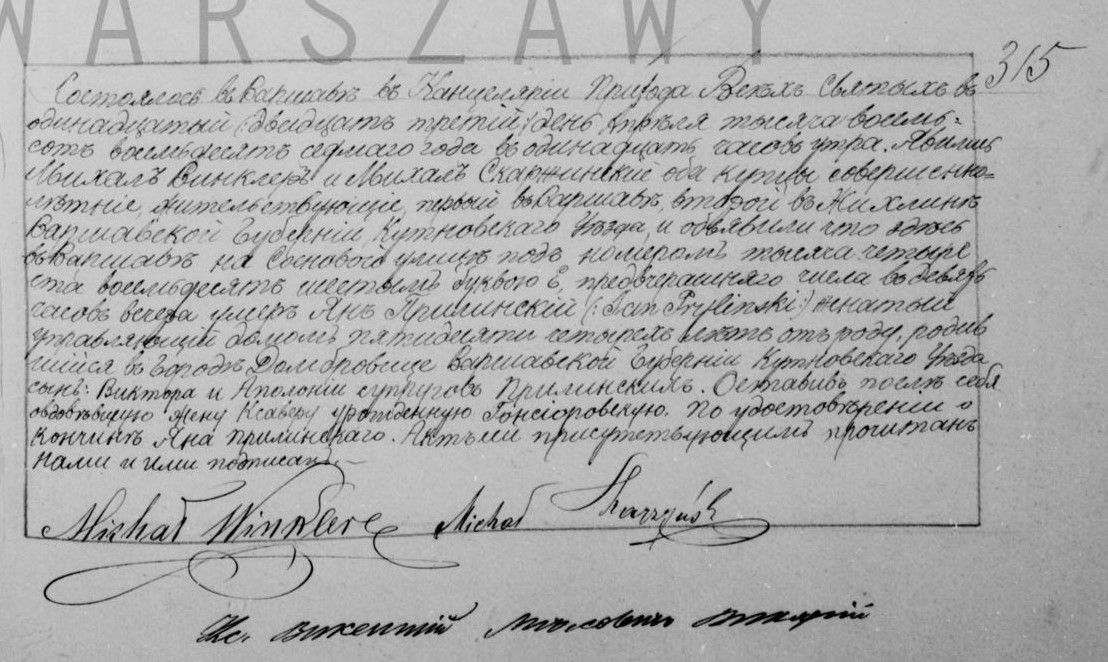 WARSZAWY
315
Состоялось въ Варшавѣ въ Канцеляріи Прихода Всѣхъ Святыхъ въ
одинадцатый (:двадцать третій:) день Апрѣля тысяча восемь=
сотъ восемьдесятъ седмаго года въ одинадцать часовъ утра. Явились
Михалъ Винклеръ и Михалъ Скаржинскіе оба купцы совершенно=
лѣтніе, жительствующіе, первый въ Варшавѣ, второй въ Жихлинѣ
Варшавской Губерніи, Кутновскаго Уѣзда, и объявили что здѣсь
въ Варшавѣ на Сосновой улицѣ подъ номеромъ тысяча четыре
ста восемьдесятъ шестымъ буквою Е, предвчерашняго числа въ девять
часовъ вечера умеръ Янъ Прилинскій (:Jan Pryliński:) женатый
управляющій домомъ пятидесяти четырехъ лѣтъ отъ роду, родив
шійся въ Городѣ Домбровице Варшавской Губерніи Кутновскаго Уѣзда
сынъ: Виктора и Аполоніи супруговъ Прилинскихъ. Оставивъ послѣ себя
овдовѣвшую жену Ксаверу урожденную Гонсіоровскую. По удостовѣреніи о
кончинѣ Яна Прилинскаго. Актъ сей присутствующимъ прочитанъ
нами и ими подписанъ.—
Michał Winklere Michał Skarzyński
Кс. Викентій Викарій